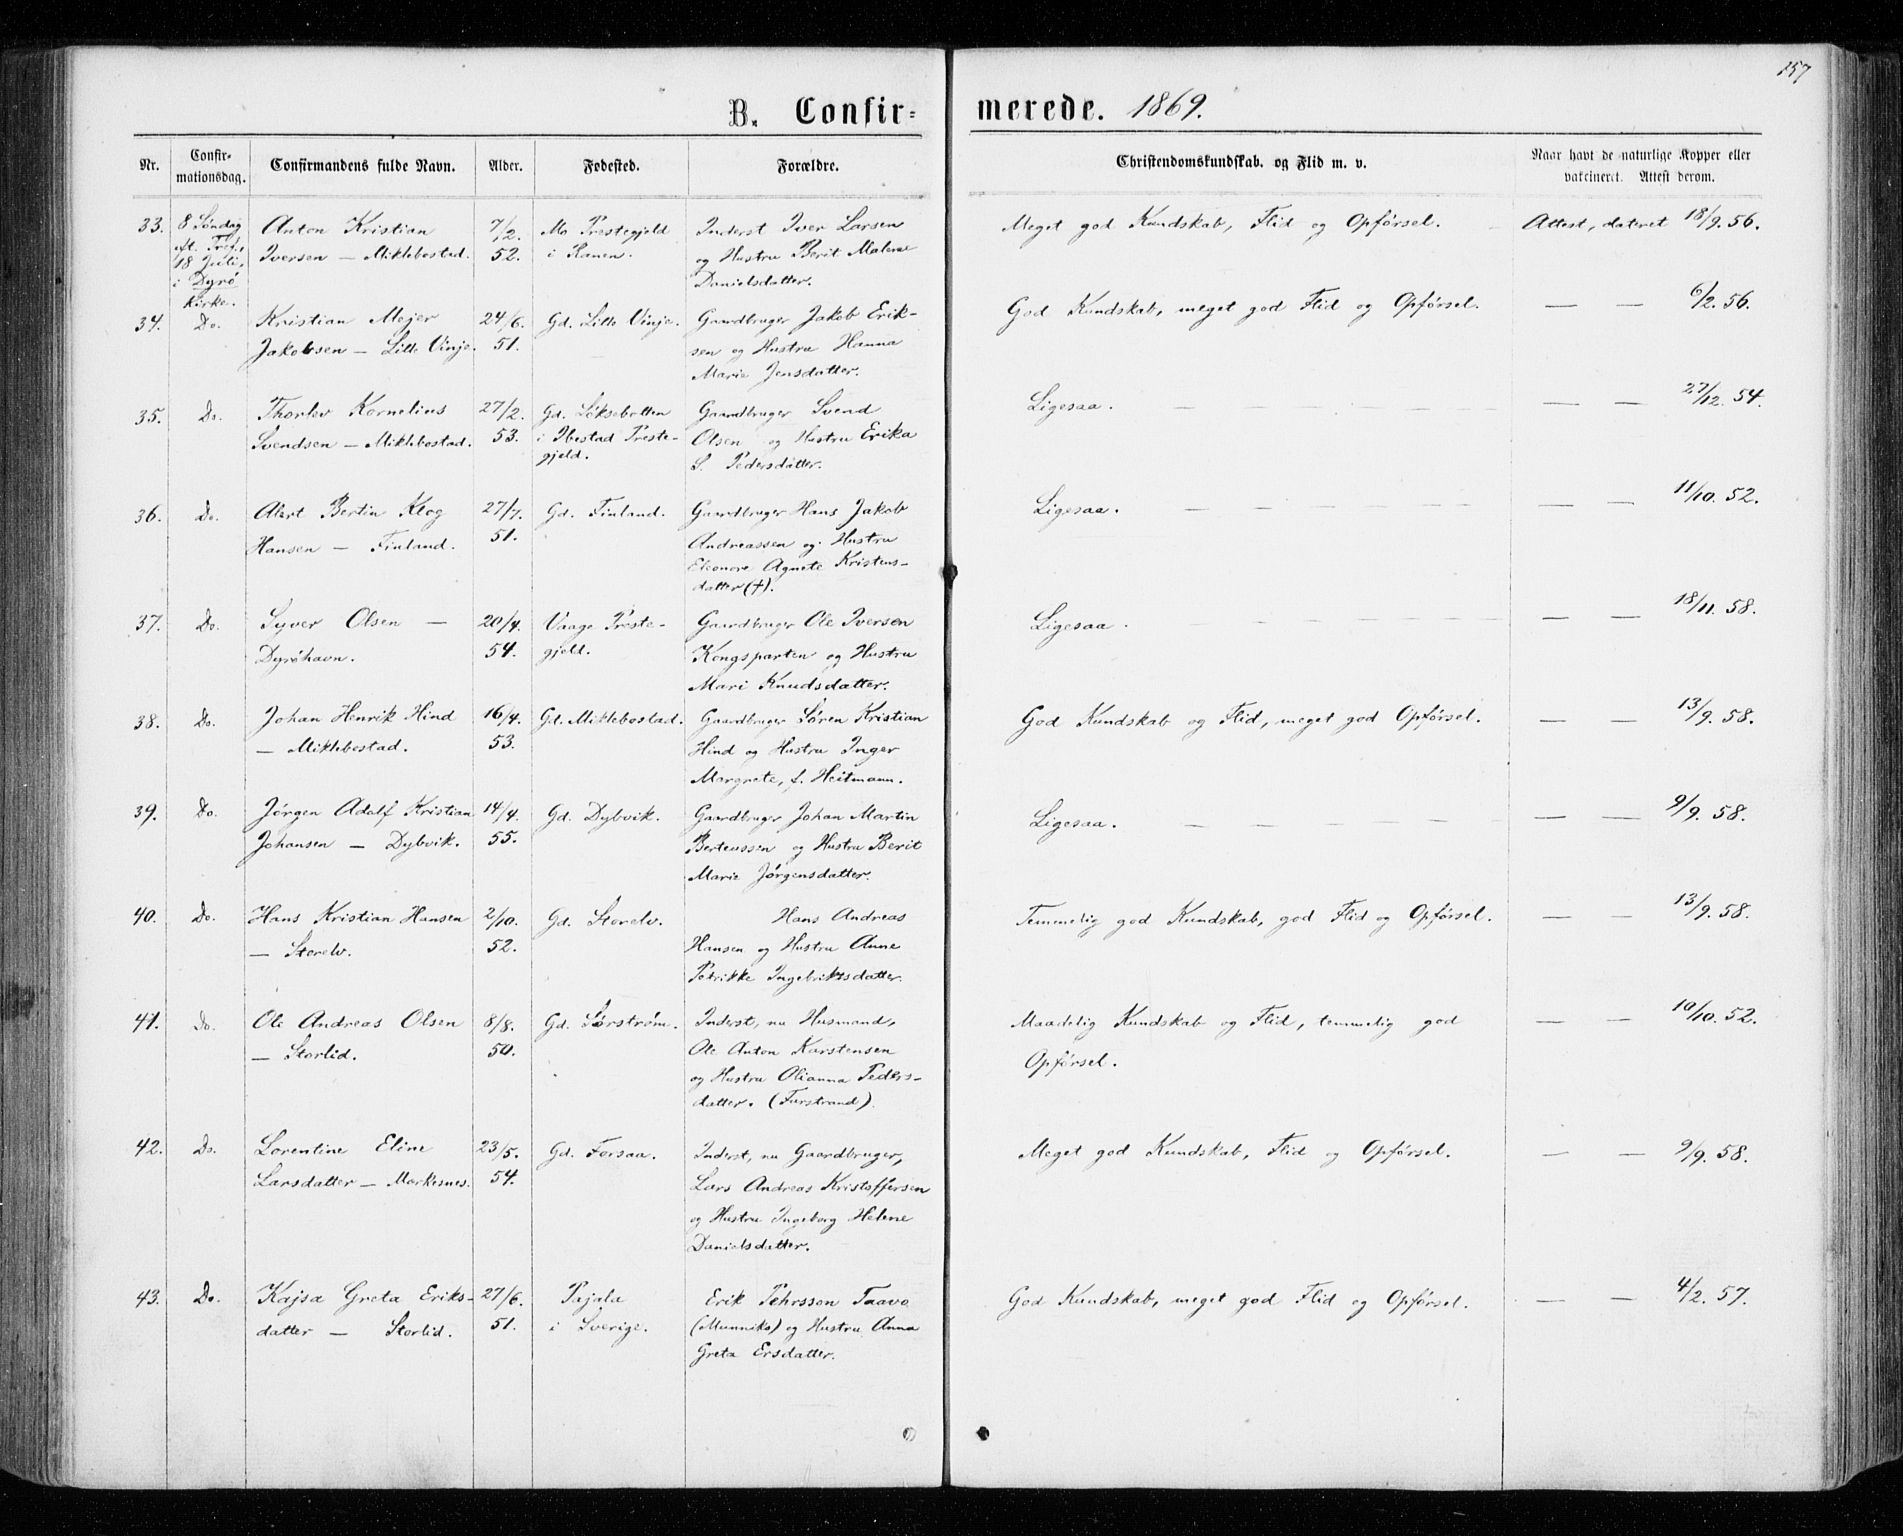 157
B. Confir=merede. 1869.
Nr. Confir-mationsdag. Confirmandens fulde Navn. Alder. Fødested. Forældre. Christendomskundskab. og Flid m. v. Naar havt de naturlige Kopper eller vakcineret. Attest derom.
33. 8 Søndag Anton Kristian 7/2. Mo Prestegjeld Inderst Iver Larsen Meget god Kundskab, Flid og Opførsel. Attest, dateret 18/9. 56.
eft. Tref., Iversen — Miklebostad. 52. i Ranen. og Hustru Berit Malene
18 Juli, Danielsdatter.
i Dyrø
Kirke.
34. Do. Kristian Mejer 24/6. Gd. Litle Vinje. Gaardbruger Jakob Erik- God Kundskab, meget god Flid og Opførsel. — — 6/2. 56.
Jakobsen — Litle Vinje. 51. sen og Hustru Hanna
Marie Jensdatter.
35. Do. Thorlev Kornelius 27/2. Gd. Løksebotten Gaardbruger Svend Ligesaa. — — — — — — — 27/12. 54.
Svendsen — Miklebostad. 53. i Ibestad Preste- Olsen og Hustru Erika
gjeld. S. Pedersdatter.
36. Do. Albert Bertin Klog 27/7. Gd. Finland. Gaardbruger Hans Jakob Ligesaa. — — — — — — — 11/10. 52.
Hansen — Finland. 51. Andreassen og Hustru
Eleonore Agnete Kristens-
datter (†).
37. Do. Syver Olsen — 20/4. Vaage Preste- Gaardbruger Ole Iversen Ligesaa. — — — — — — 18/11. 58.
Dyrøhavn. 54. gjeld. Kongsparten og Hustru
Mari Knudsdatter.
38. Do. Johan Henrik Hind 16/4. Gd. Miklebostad. Gaardbruger Søren Kristian God Kundskab og Flid, meget god Opførsel. — — 13/9. 58.
— Miklebostad. 53. Hind og Hustru Inger
Margrete, f. Heitmann.
39. Do. Jørgen Adolf Kristian 14/4. Gd. Dybvik. Gaardbruger Johan Martin Ligesaa. — — — — — — — 9/9. 58.
Johansen — Dybvik. 55. Berteussen og Hustru Berit
Marie Jørgensdatter.
40. Do. Hans Kristian Hansen 2/10. Gd. Storelv. Hans Andreas Temmelig god Kundskab, god Flid og Opførsel. — — 13/9. 58.
— Storelv. 52. Hansen og Hustru Anne
Petrikke Ingebriktsdatter.
41. Do. Ole Andreas Olsen 8/8. Gd. Sørstrøm. Inderst, nu Husmand, Maadelig Kundskab og Flid, temmelig god — — 10/10. 52.
— Storlid. 50. Ole Anton Karstensen Opførsel.
og Hustru Olianna Peders-
datter. (Furstrand).
42. Do. Lorentine Eline 23/5. Gd. Forsaa. Inderst, nu Gaardbruger, Meget god Kundskab, Flid og Opførsel. — — 9/9. 58.
Larsdatter — Markesnes. 54. Lars Andreas Kristoffersen
og Hustru Ingeborg Helene
Danielsdatter.
43. Do. Kajsa Greta Eriks- 27/6. Pajala Erik Pehrsson Taavo God Kundskab, meget god Flid og Opførsel. — — 4/2. 57.
datter — Storlid. 51. i Sverige. (Munniko) og Hustru Anna
Greta Ersdatter.